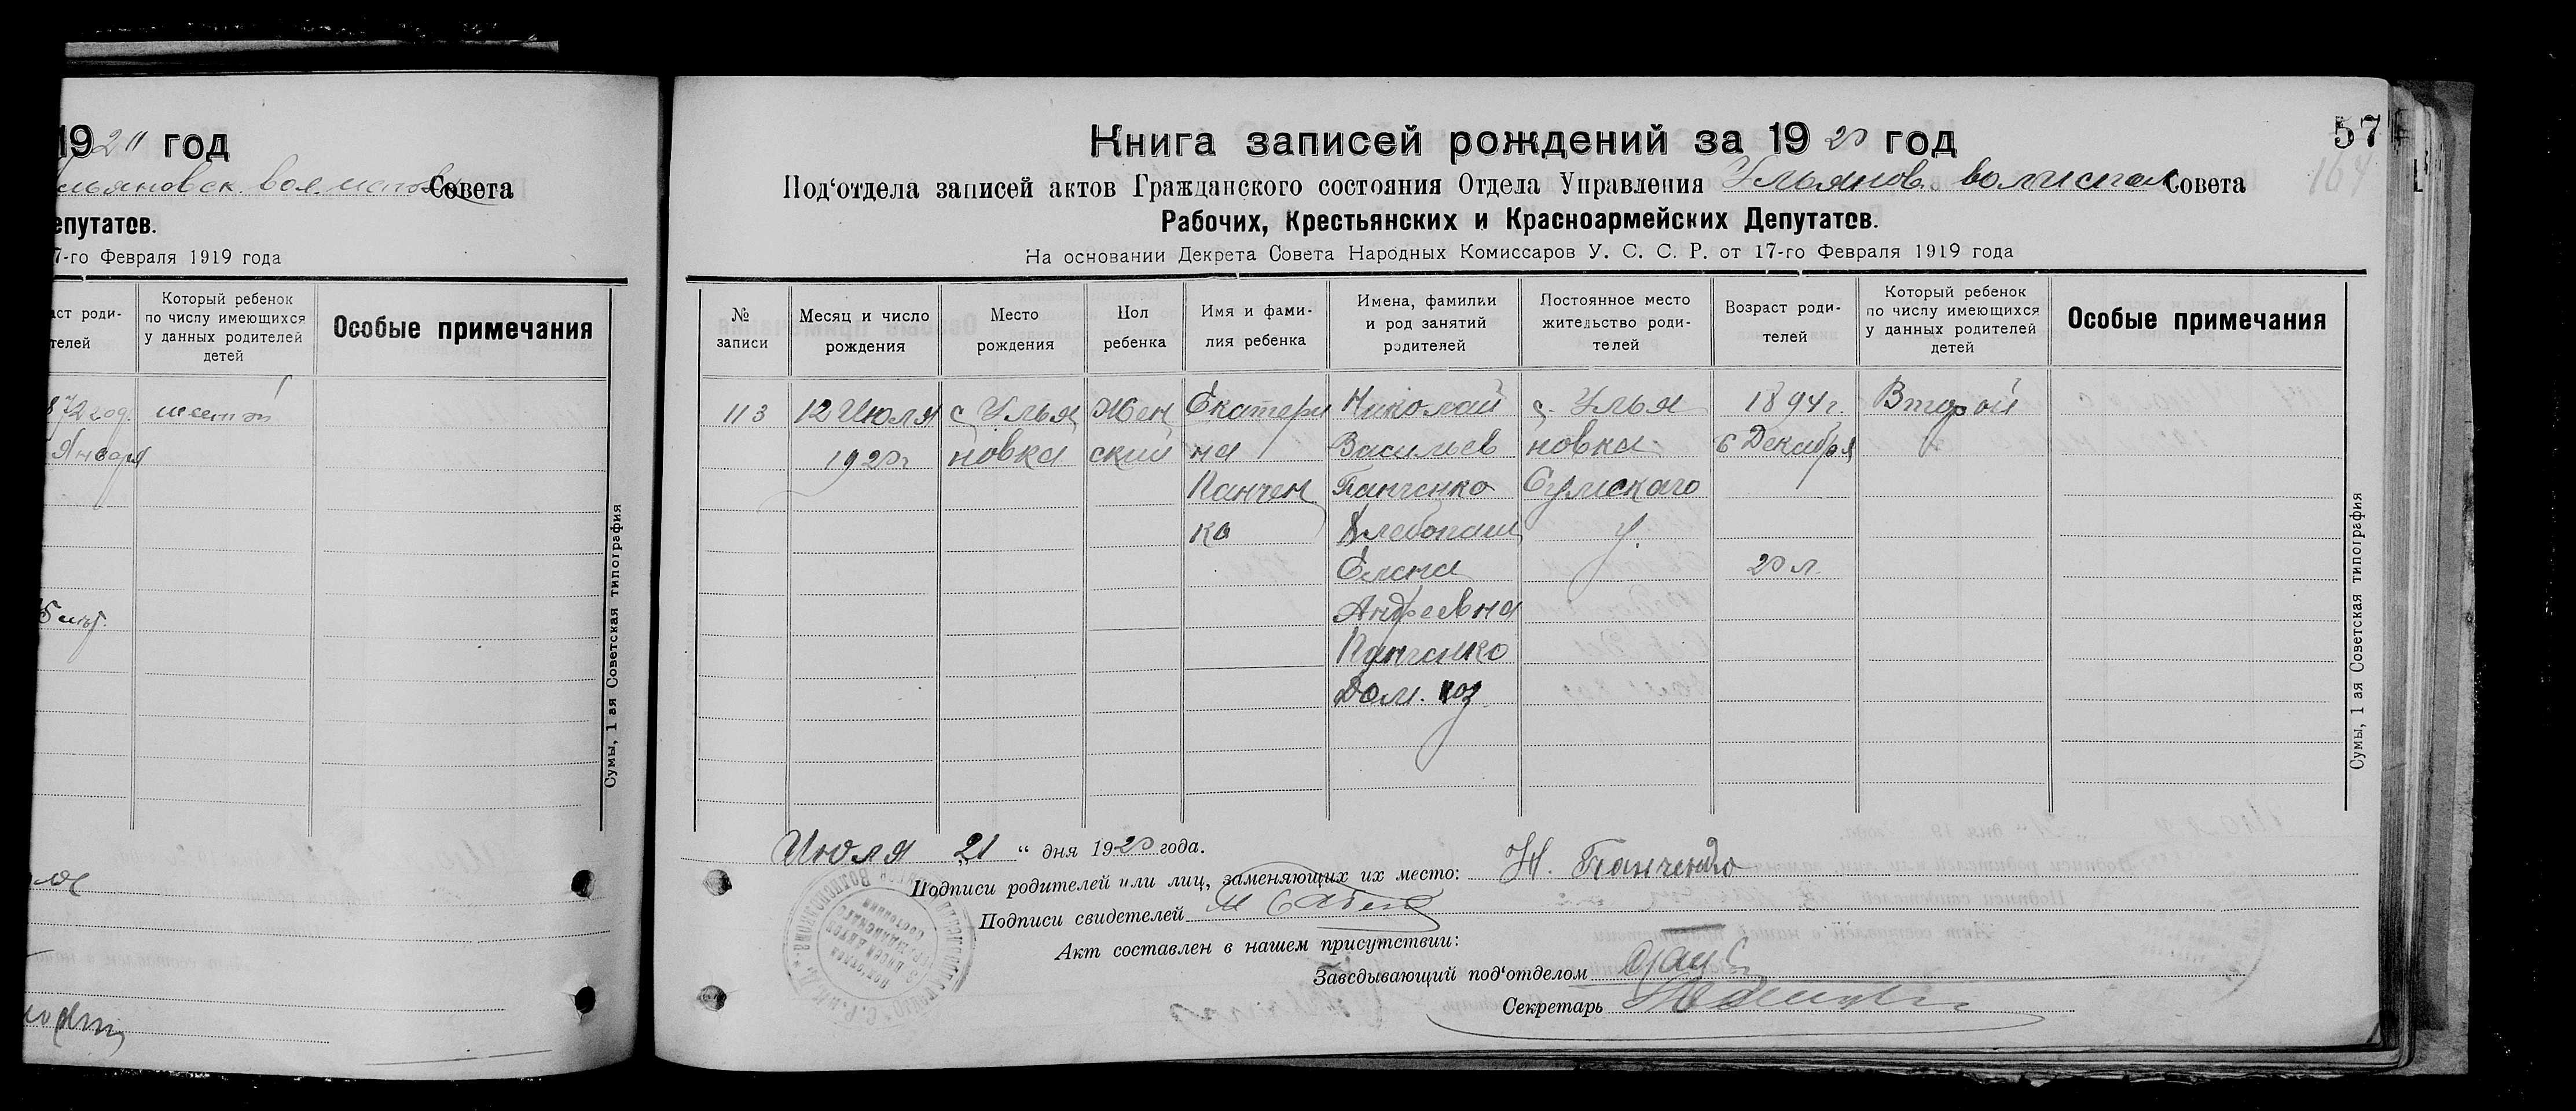 1920 год
Совета
епутатов.
7-го Февраля 1919 года
аст роди-
телей
Который ребенок
по числу имеющихся
у данных родителей
детей
Особые примечания
872 год.
шестой
Января
Сумы, 1 ая Советская типография
57
164
Книга записей рождений за 1920 год
Под‘отдела записей актов Гражданского состояния Отдела Управления Ульянов. волиспол Совета
Рабочих, Крестьянских и Красноармейских Депутатов.
На основании Декрета Совета Народных Комиссаров У. С. С. Р. от 17-го Февраля 1919 года
№
записи
Месяц и число
рождения
Место
рождения
Пол
ребенка
Имя и фами-
лия ребенка
Имена, фамилии
и род занятий
родителей
Постоянное место
жительство роди-
телей
Возраст роди-
телей
Который ребенок
по числу имеющихся
у данных родителей
детей
Особые примечания
113
12 Июля
1920 г
с Улья
новка
Жен
ский
Екатери
на
Панчен
ко
Николай
Васильев
Панченко
Хлебопаш
Елена
Андреевна
Панченко
Дом. хоз
с. Улья
новка
Сумскаго
у.
1894 г.
6 Декабря
20 л.
Второй
Сумы, 1 ая Советская типография
Июля 21 “ дня 1920 года.
Подписи родителей или лиц, заменяющих их место: Н. Панченко
Подписи свидетелей
Акт составлен в нашем присутствии:
Заведывающий под‘отделом
Секретарь